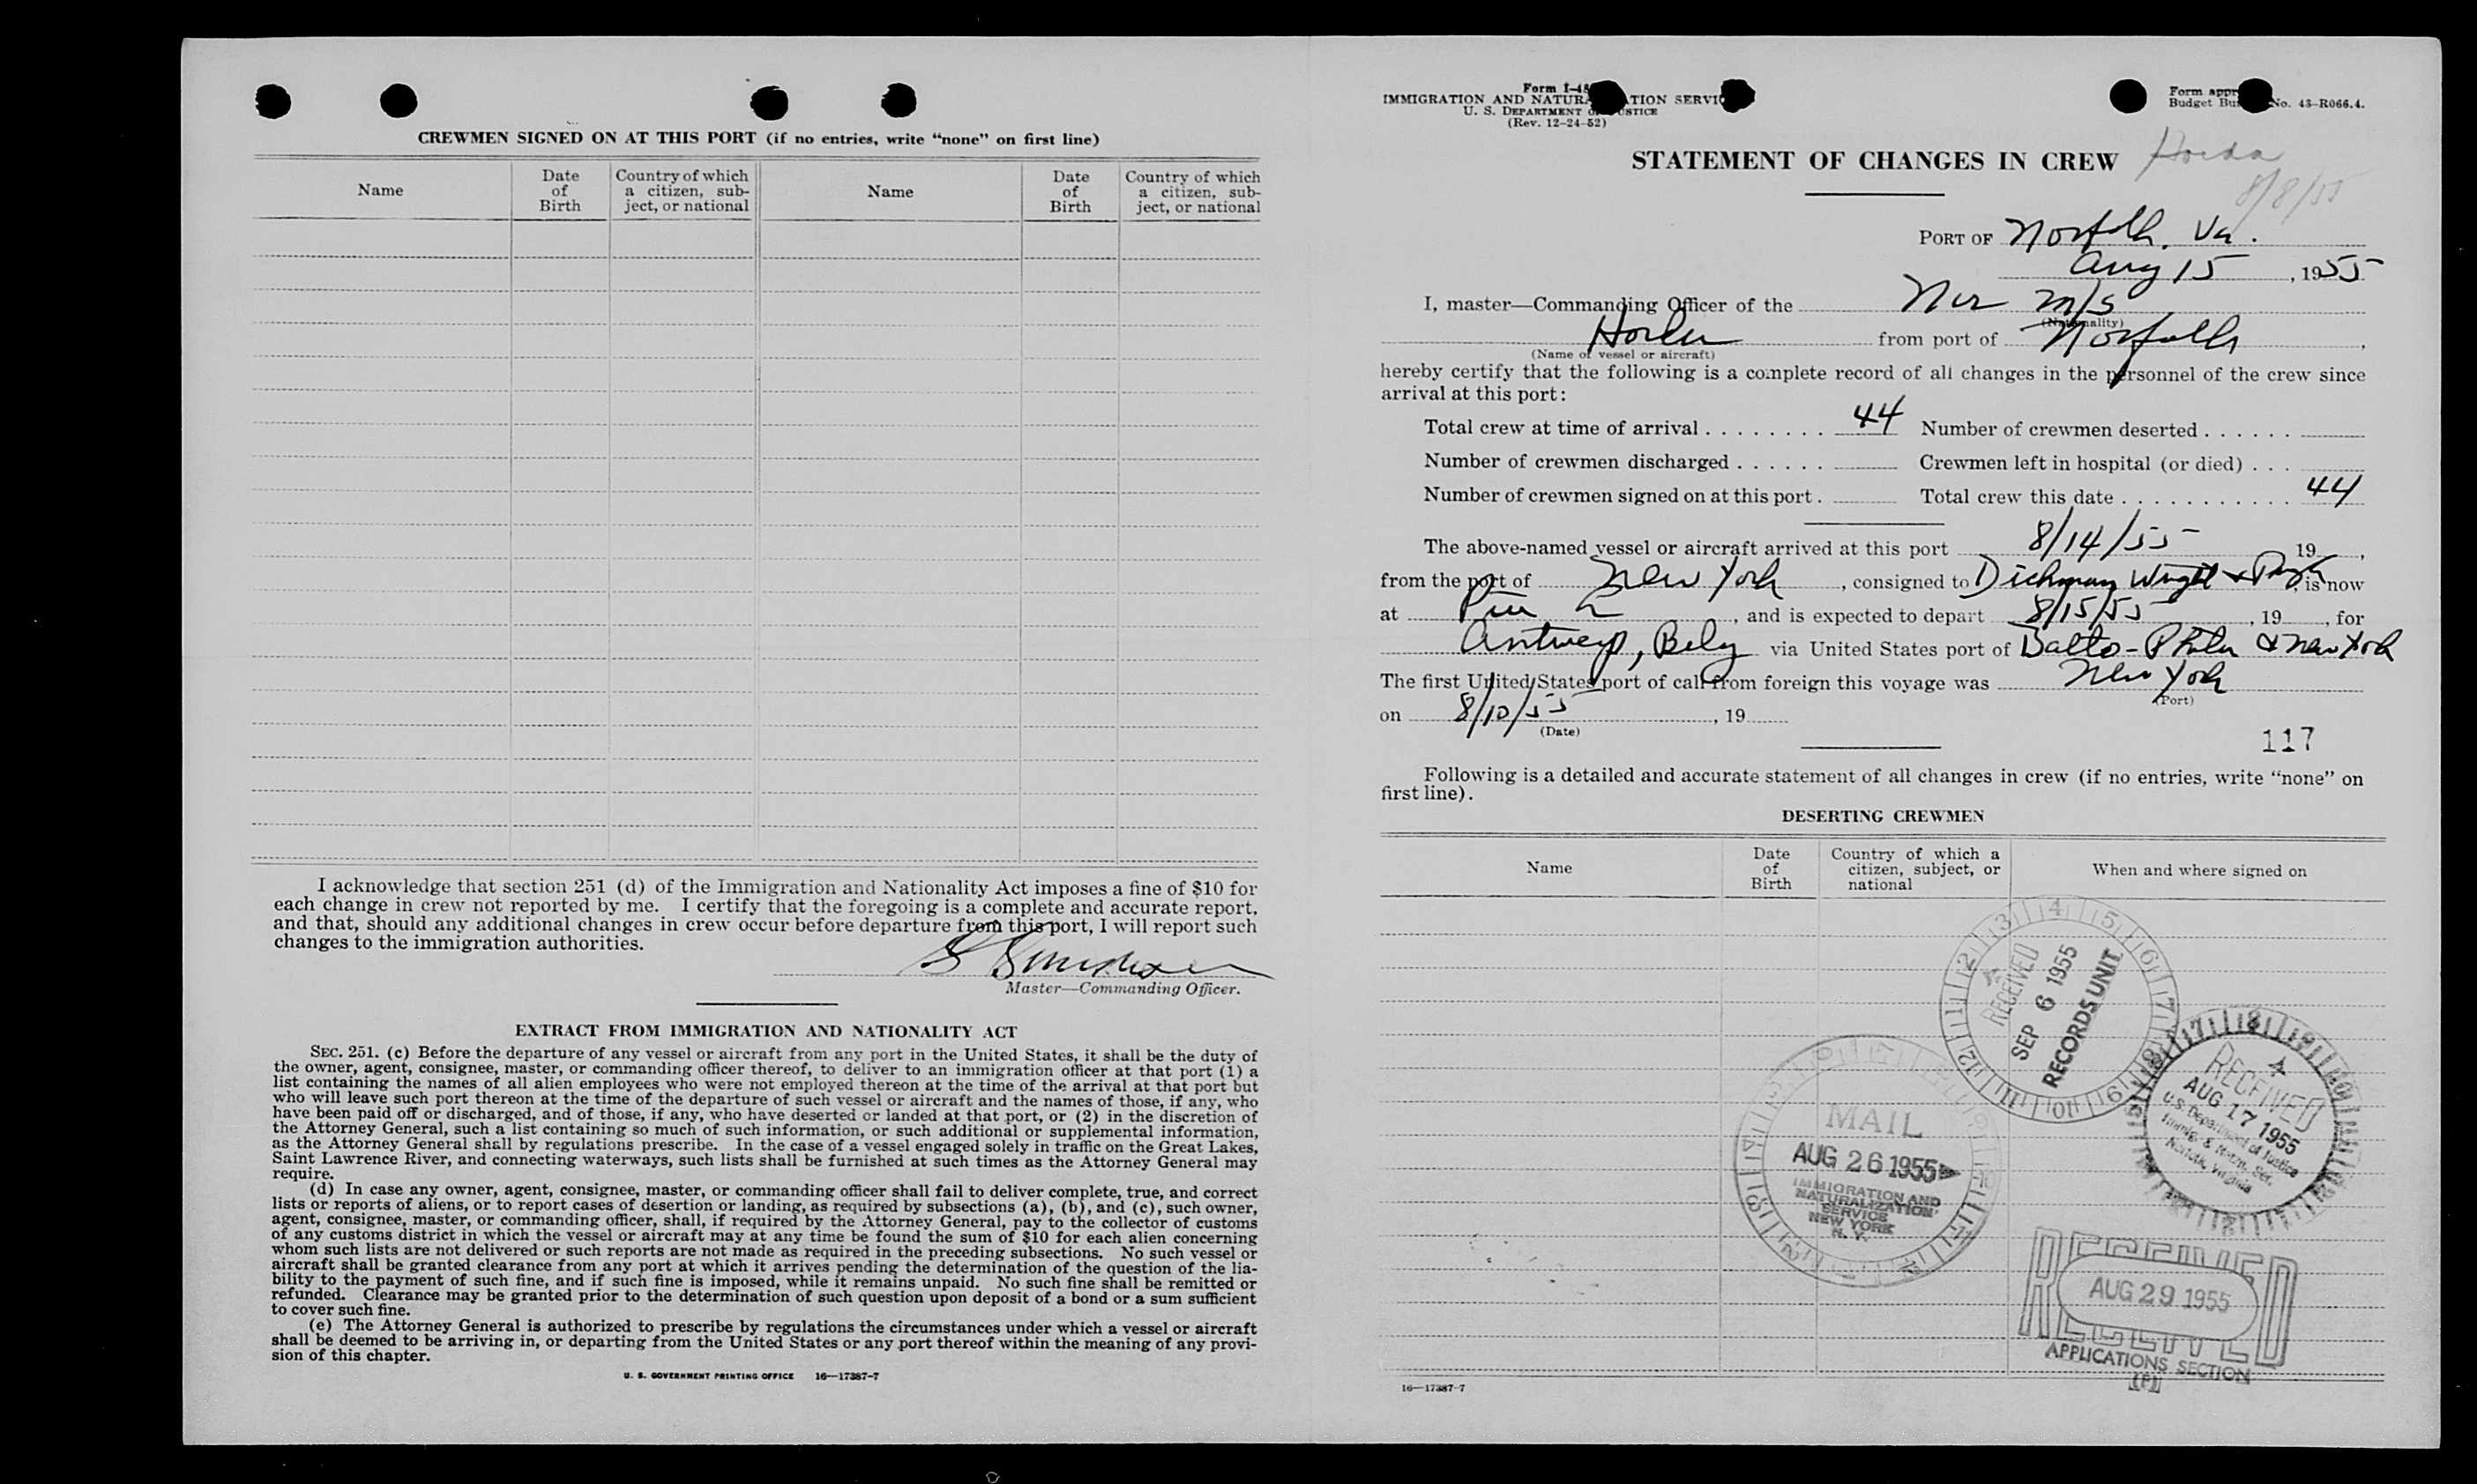 CREWMEN SIGNED ON AT THIS PORT (if no entries, write “none” on first line)
Name
Date of Birth
Country of which a citizen, sub-ject, or national
Name
Date of Birth
Country of which a citizen, sub-ject, or national
I acknowledge that section 251 (d) of the Immigration and Nationality Act imposes a fine of $10 for
each change in crew not reported by me. I certify that the foregoing is a complete and accurate report,
and that, should any additional changes in crew occur before departure from this port, I will report such
changes to the immigration authorities.
Master—Commanding Officer.
EXTRACT FROM IMMIGRATION AND NATIONALITY ACT
SEC. 251. (c) Before the departure of any vessel or aircraft from any port in the United States, it shall be the duty of
the owner, agent, consignee, master, or commanding officer thereof, to deliver to an immigration officer at that port (1) a
list containing the names of all alien employees who were not employed thereon at the time of the arrival at that port but
who will leave such port thereon at the time of the departure of such vessel or aircraft and the names of those, if any, who
have been paid off or discharged, and of those, if any, who have deserted or landed at that port, or (2) in the discretion of
the Attorney General, such a list containing so much of such information, or such additional or supplemental information,
as the Attorney General shall by regulations prescribe. In the case of a vessel engaged solely in traffic on the Great Lakes,
Saint Lawrence River, and connecting waterways, such lists shall be furnished at such times as the Attorney General may
require.
(d) In case any owner, agent, consignee, master, or commanding officer shall fail to deliver complete, true, and correct
lists or reports of aliens, or to report cases of desertion or landing, as required by subsections (a), (b), and (c), such owner,
agent, consignee, master, or commanding officer, shall, if required by the Attorney General, pay to the collector of customs
of any customs district in which the vessel or aircraft may at any time be found the sum of $10 for each alien concerning
whom such lists are not delivered or such reports are not made as required in the preceding subsections. No such vessel or
aircraft shall be granted clearance from any port at which it arrives pending the determination of the question of the lia-
bility to the payment of such fine, and if such fine is imposed, while it remains unpaid. No such fine shall be remitted or
refunded. Clearance may be granted prior to the determination of such question upon deposit of a bond or a sum sufficient
to cover such fine.
(e) The Attorney General is authorized to prescribe by regulations the circumstances under which a vessel or aircraft
shall be deemed to be arriving in, or departing from the United States or any port thereof within the meaning of any provi-
sion of this chapter.
U. S. GOVERNMENT PRINTING OFFICE 16—17387-7
Form I-48
IMMIGRATION AND NATURA TION SERVI
U. S. DEPARTMENT OF JUSTICE
(Rev. 12-24-52)
Form appr
Budget Bu No. 43-R066.4.
STATEMENT OF CHANGES IN CREW
Horda
8/8/55
PORT OF Norfolk, Va.
Aug 15, 1955
I, master—Commanding Officer of the Nor m/s
(Nationality)
Horda from port of Norfolk,
(Name of vessel or aircraft)
hereby certify that the following is a complete record of all changes in the personnel of the crew since
arrival at this port:
Total crew at time of arrival . . . . . . . . 44 Number of crewmen deserted . . . . . .
Number of crewmen discharged . . . . . . Crewmen left in hospital (or died) . . .
Number of crewmen signed on at this port . Total crew this date . . . . . . . . . . . 44
The above-named vessel or aircraft arrived at this port 8/14/55 19 ,
from the port of New York, consigned to Dichmann Wright & Pugh, is now
at Pier 2, and is expected to depart 8/15/55, 19 , for
Antwerp, Belg via United States port of Balto - Phila & New York
The first United States port of call from foreign this voyage was New York
(Port)
on 8/10/55, 19
(Date)
117
Following is a detailed and accurate statement of all changes in crew (if no entries, write “none” on
first line).
DESERTING CREWMEN
Name
Date of Birth
Country of which a citizen, subject, or national
When and where signed on
RECEIVED
SEP 6 1955
RECORDS UNIT
RECEIVED
AUG 17 1955
U.S. Department of Justice
Immig. & Natrn. Ser.
Norfolk, Virginia
MAIL
AUG 26 1955
IMMIGRATION AND
NATURALIZATION
SERVICE
NEW YORK
N. Y.
RECEIVED
AUG 29 1955
RECEIVED
APPLICATIONS SECTION
(P)
16—17387-7